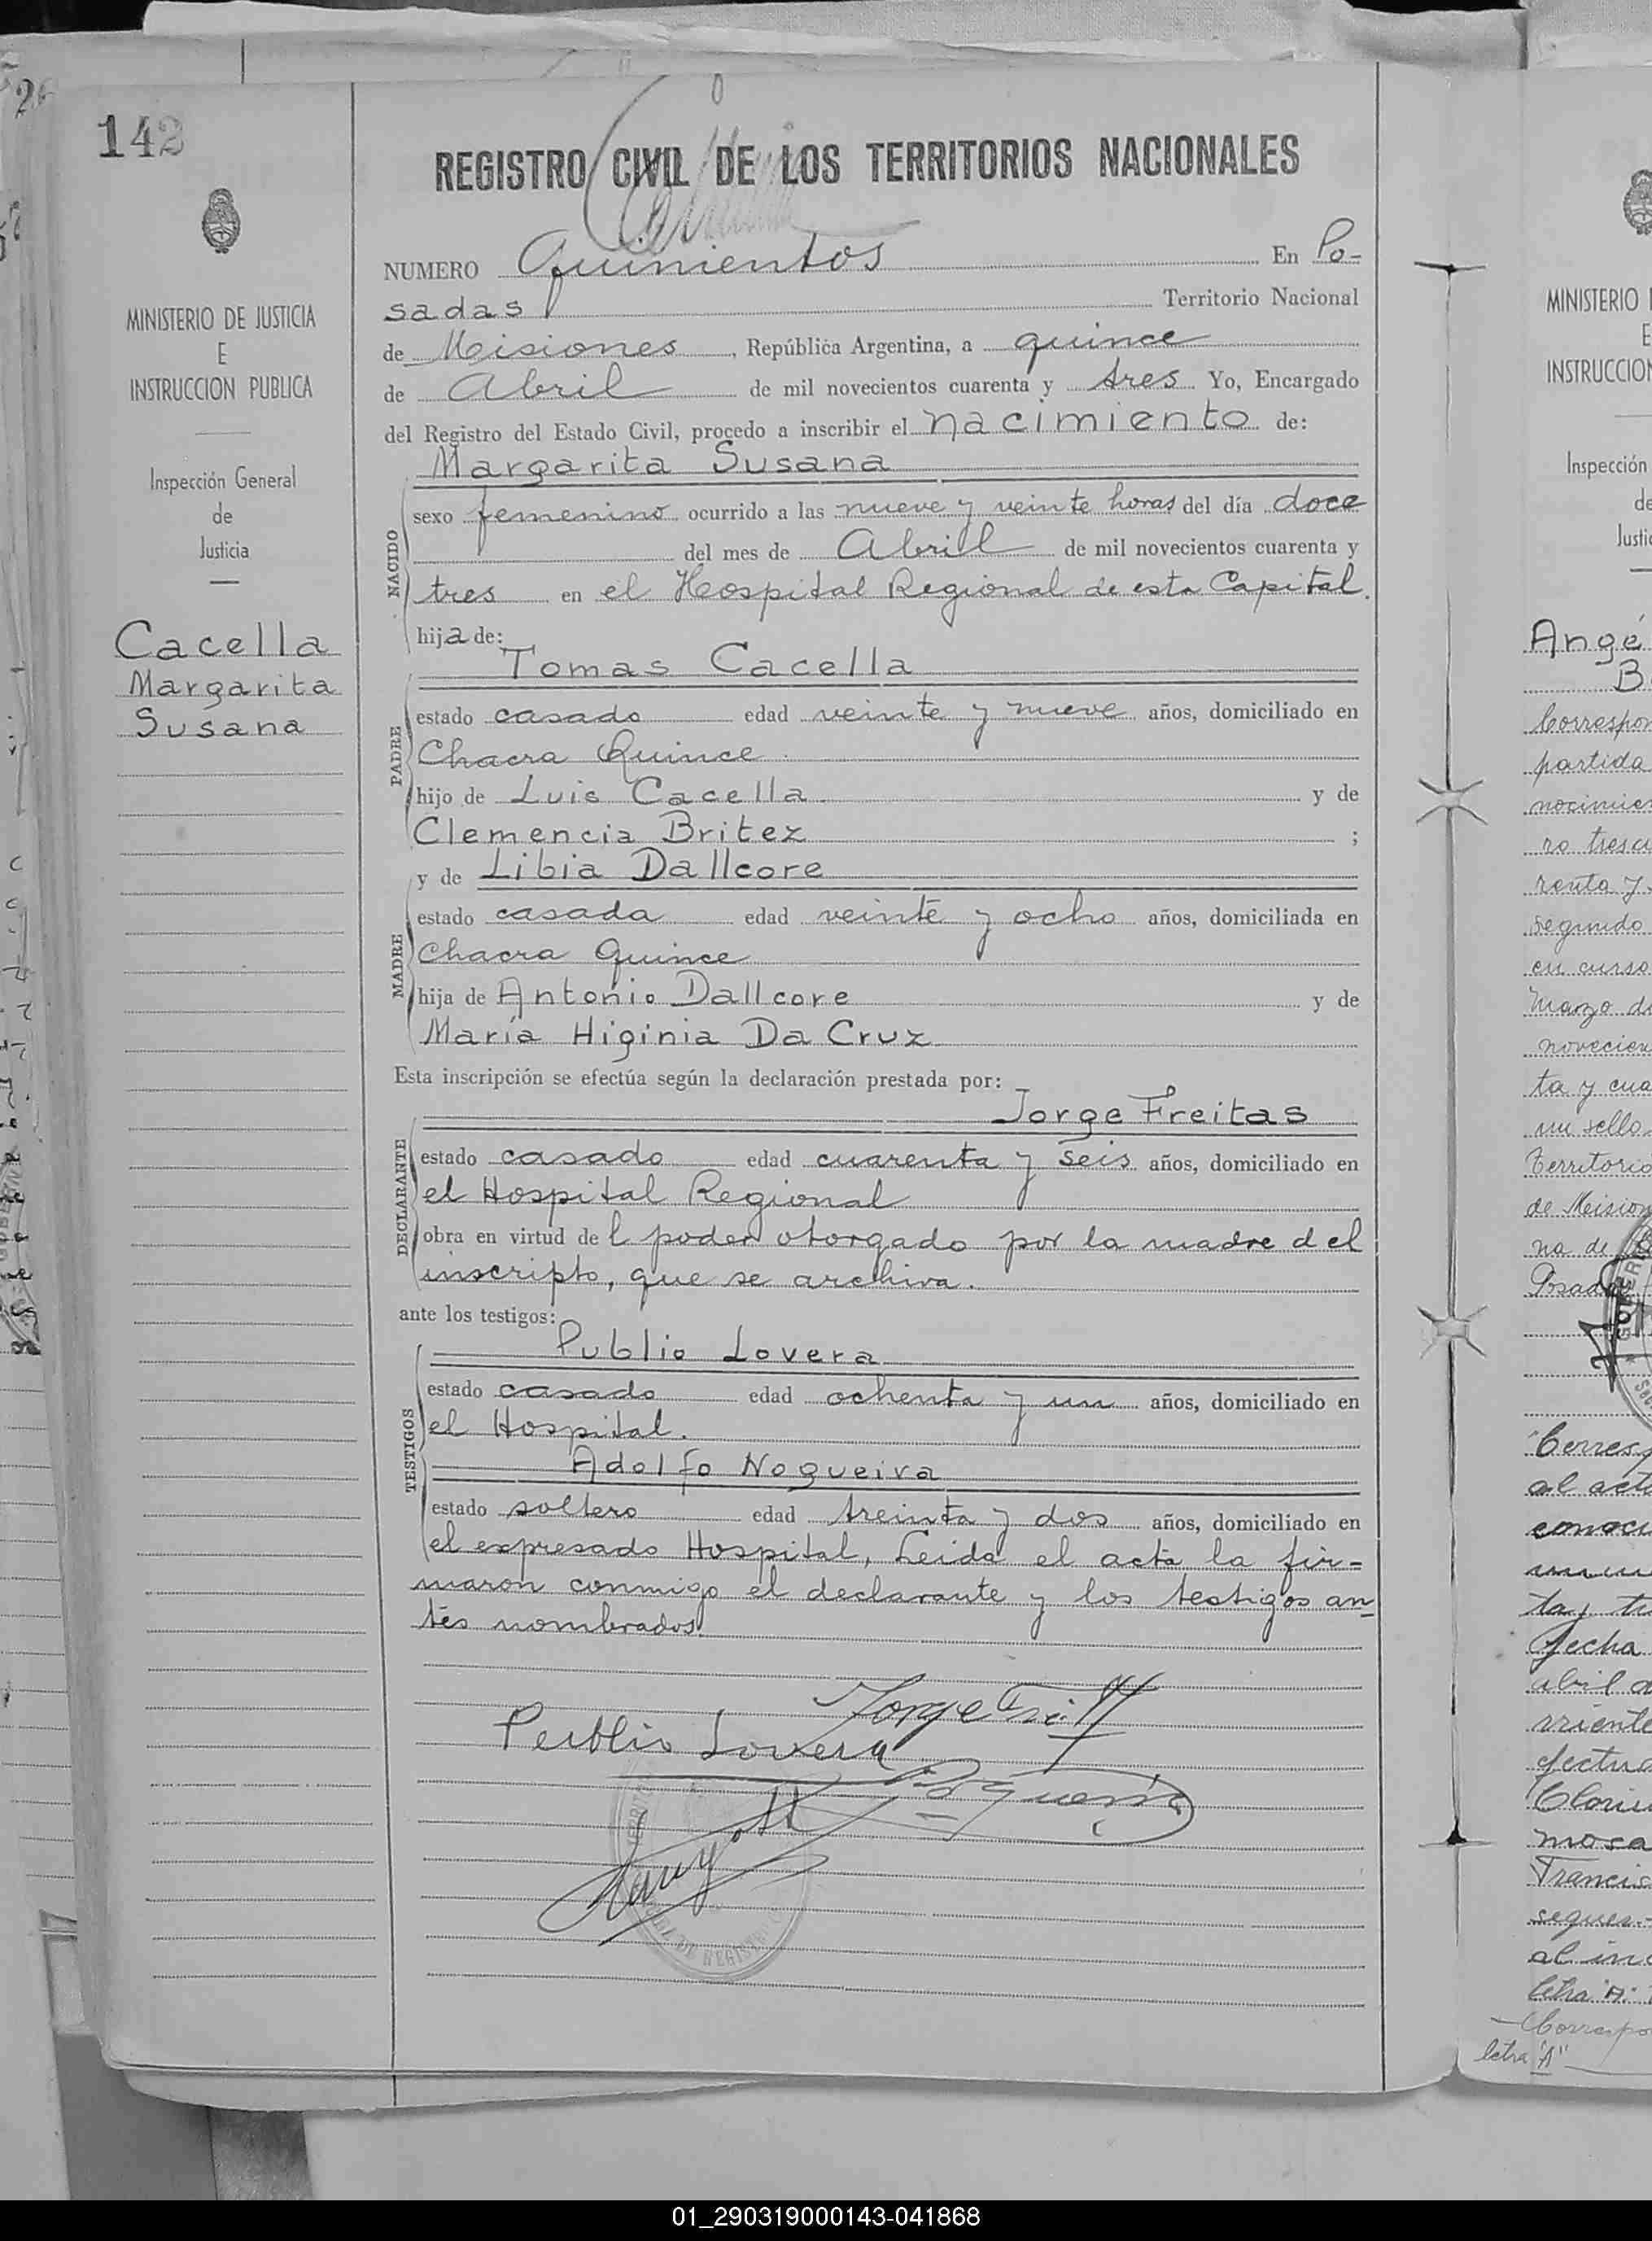 142
REGISTRO CIVIL DE LOS TERRITORIOS NACIONALES
MINISTERIO DE JUSTICIA
E
INSTRUCCION PUBLICA
Inspección General
de
Justicia
Cacella
Margarita
Susana
NUMERO Quinientos En Po-
sadas Territorio Nacional
de Misiones, República Argentina, a quince
de Abril de mil novecientos cuarenta y tres Yo, Encargado
del Registro del Estado Civil, procedo a inscribir el nacimiento de:
Margarita Susana
NACIDO
sexo femenino ocurrido a las nueve y veinte horas del día doce
del mes de Abril de mil novecientos cuarenta y
tres en el Hospital Regional de esta Capital.
hija de:
Tomas Cacella
PADRE
estado casado edad veinte y nueve años, domiciliado en
Chacra Quince
hijo de Luis Cacella y de
Clemencia Britez ;
y de Libia Dallcore
MADRE
estado casada edad veinte y ocho años, domiciliada en
Chacra Quince
hija de Antonio Dallcore y de
María Higinia Da Cruz
Esta inscripción se efectúa según la declaración prestada por:
Jorge Freitas
DECLARANTE
estado casado edad cuarenta y seis años, domiciliado en
el Hospital Regional
obra en virtud del poder otorgado por la madre del
inscripto, que se archiva.
ante los testigos:
Publio Lovera
TESTIGOS
estado casado edad ochenta y un años, domiciliado en
el Hospital.
Adolfo Nogueira
estado soltero edad treinta y dos años, domiciliado en
el expresado Hospital, Leida el acta la fir=
maron conmigo el declarante y los testigos an=
tes nombrados.
Publio Lovera
MINISTERIO
E
INSTRUCCION
Inspección
de
Angé
B
partida
segundo
en curso
Marzo de
ta y cua
un sello
Territorio
de Mision
na de
Posadas
al acta
fecha
abril
mosa
Francis
al inc
letra "A"
letra "A"
01_290319000143-041868